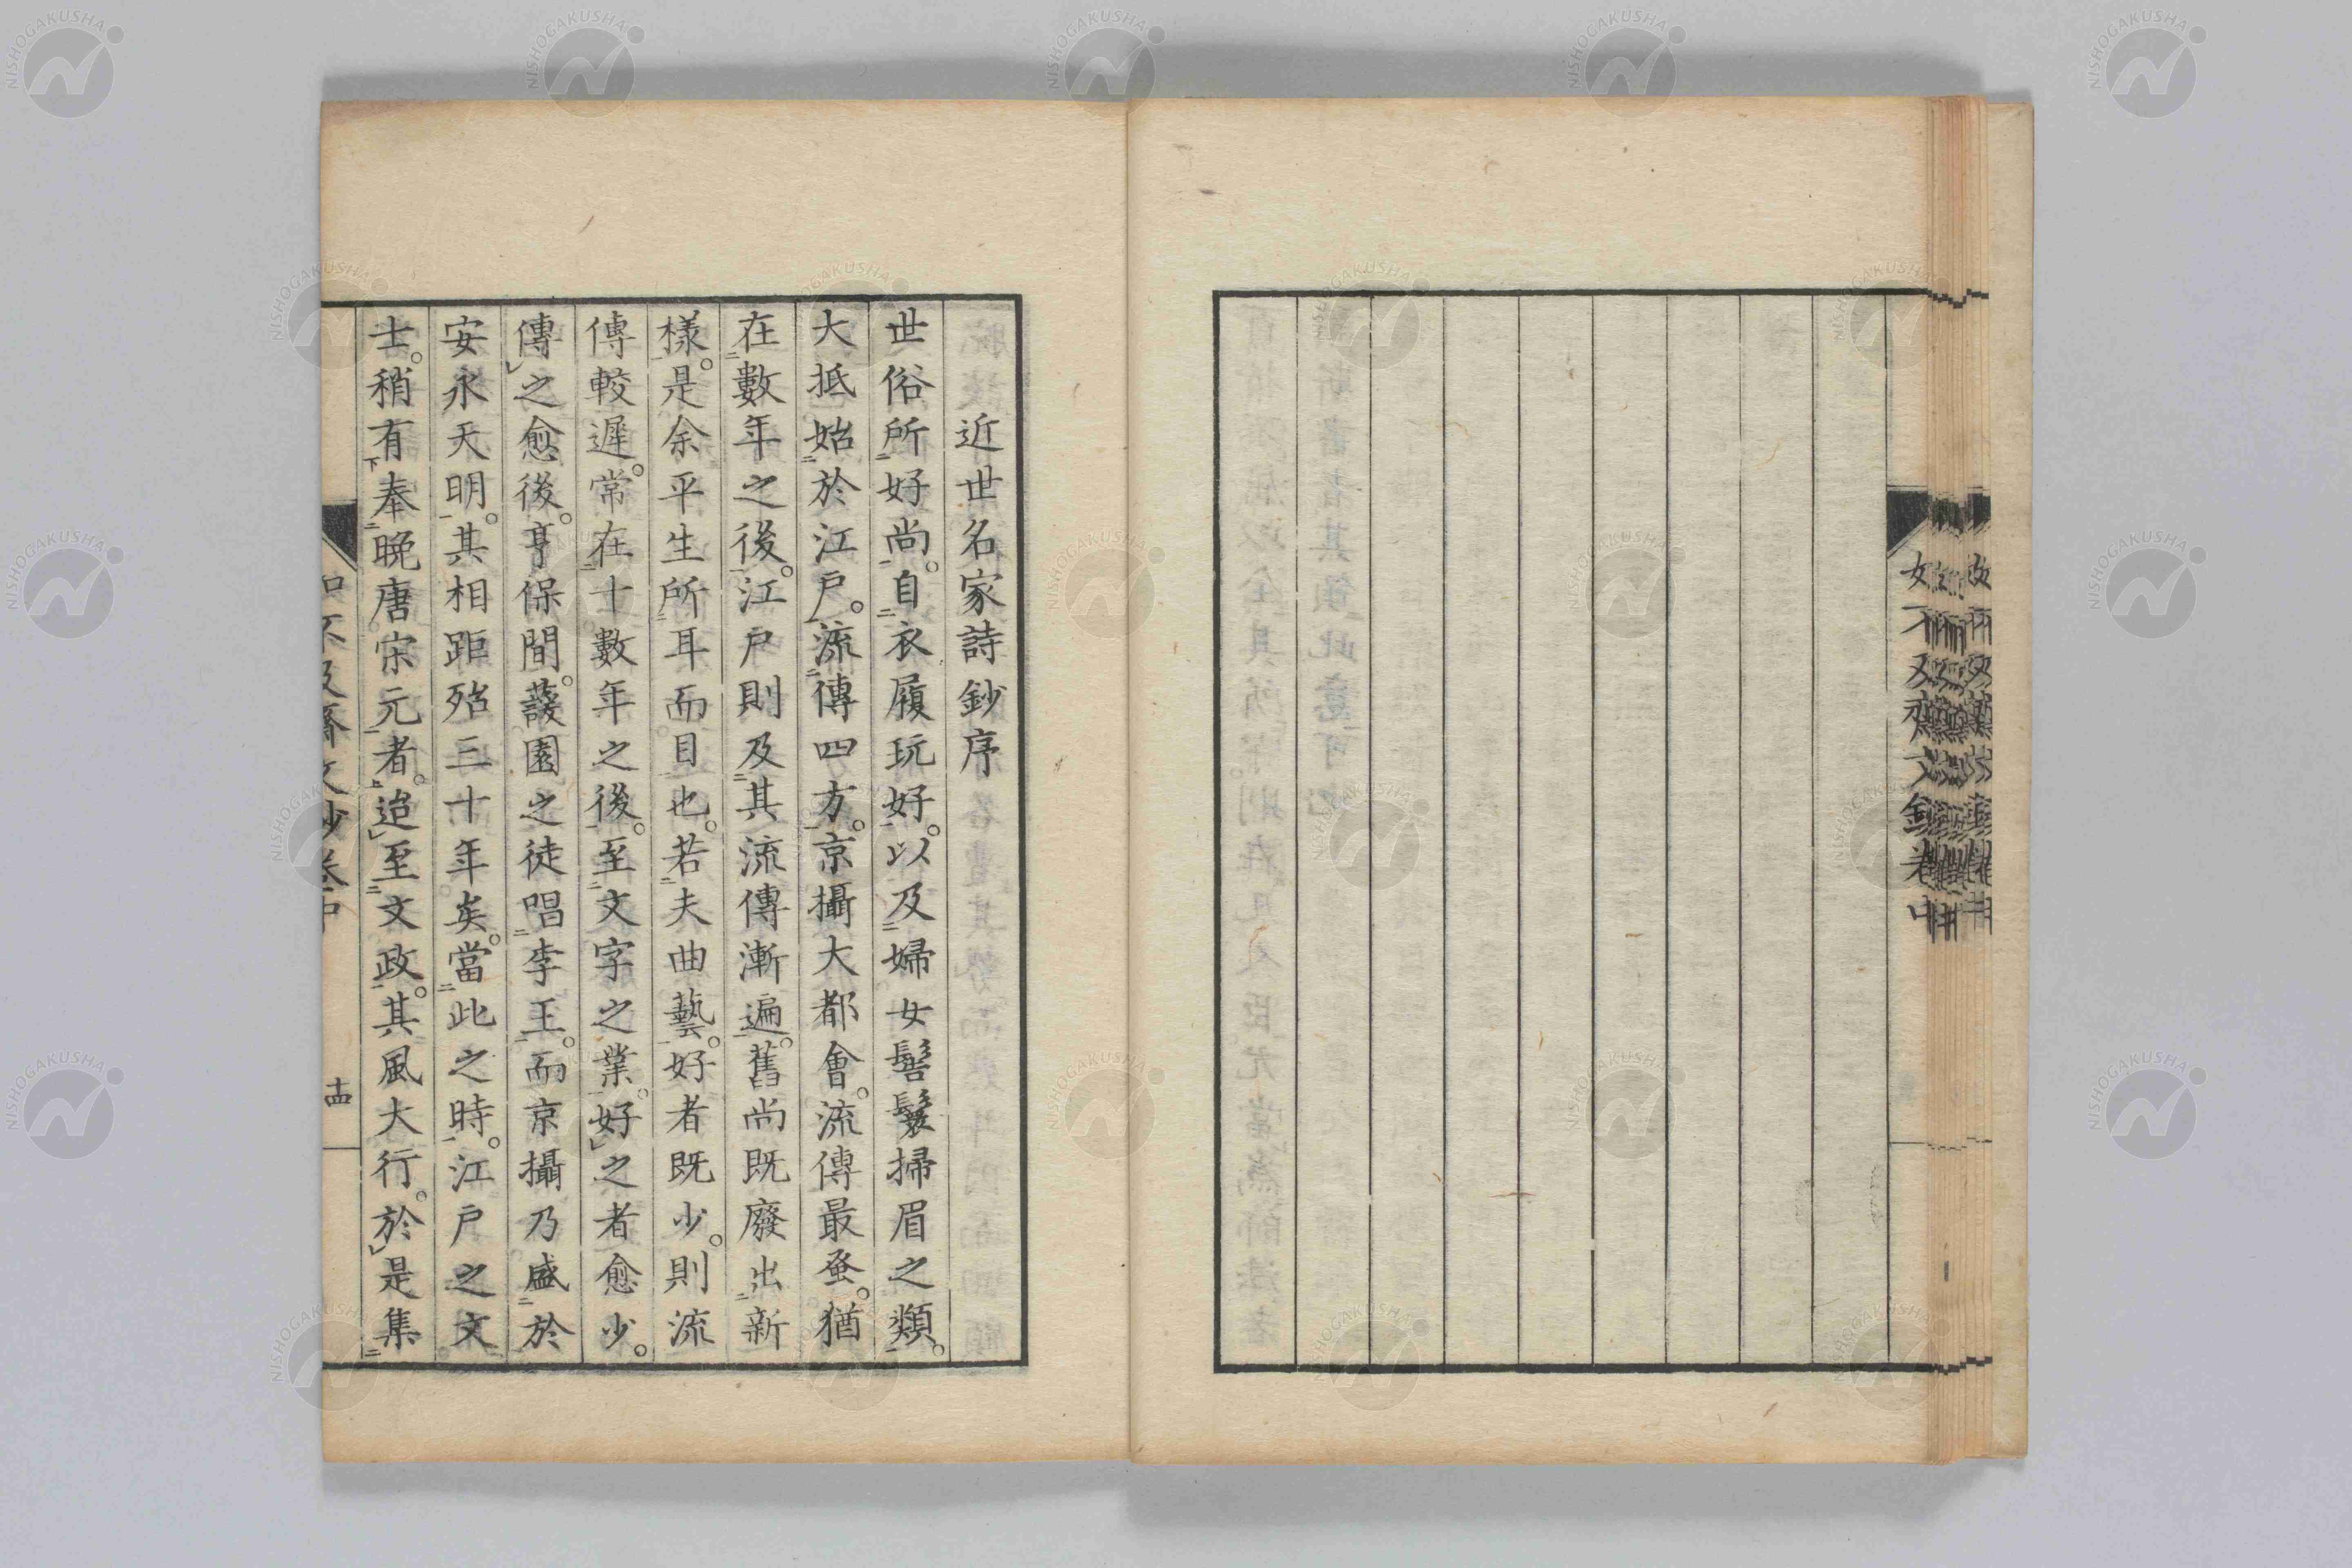 近世名家詩鈔序
世俗所好尚。自衣履玩好。以及婦女髻鬟掃眉之類。
大抵始於江戶。流傳四方。京攝大都會。流傳最蚤。猶
在數年之後。江戶則及其流傳漸遍。舊尚既廢出新
樣。是余平生所耳而目也。若夫曲藝。好者既少。則流
傳較遲。常在十數年之後。至文字之業。好之者愈少。
傳之愈後。享保間。蘐園之徒唱李王。而京攝乃盛於
安永天明。其相距殆三十年矣。當此之時。江戶之文
士。稍有奉晚唐宋元者。迨至文政。其風大行。於是集
如不及齋文鈔卷中
十四
NISHOGAKUSHA